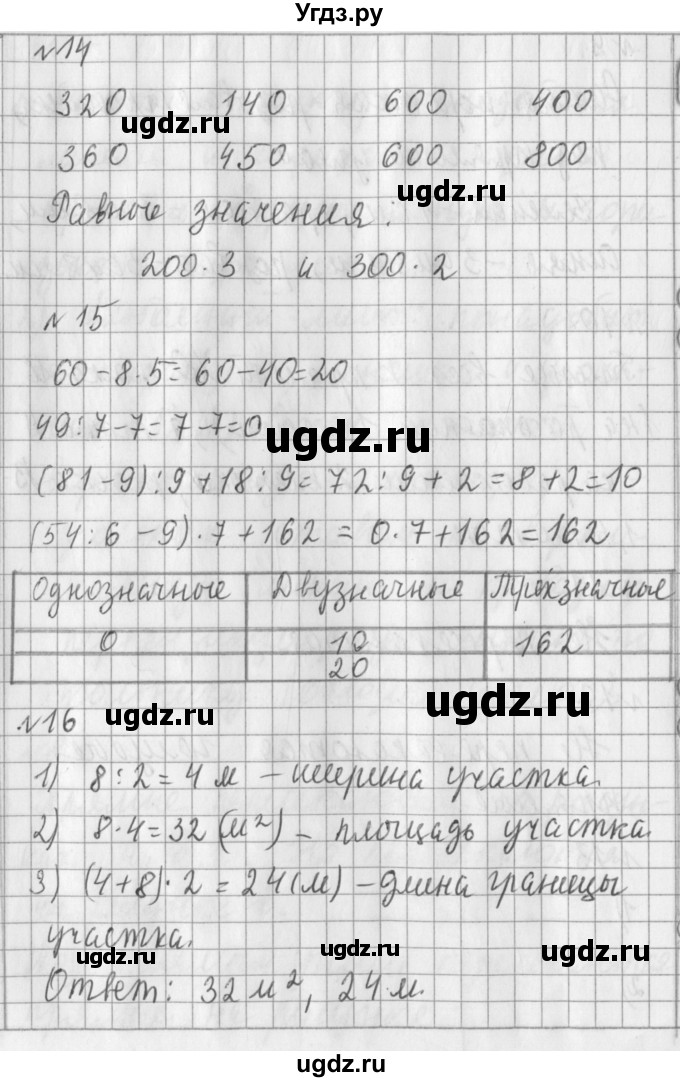 Угдз.ру
№14
320 140 600 400
ugdz.ru
360 450 600 800
ugdz.ru
Равные значения:
200·3 и 300·2
№15
60-8·5=60-40=20
49:7-7=7-7=0
ugdz.ru
(81-9):9+18:9=72:9+2=8+2=10
(54:6-9)·7+162=0·7+162=162
Однозначные Двузначные Трёхзначные
0 10 162
20
ugdz.ru
№16 ugdz.ru
1) 8:2=4 м – ширина участка.
2) 8·4=32 (м²) – площадь участка.
3) (4+8)·2=24(м) – длина границы
участка.
ugdz.ru ugdz.ru ugdz.ru
Ответ: 32 м², 24 м.
ugdz.ru